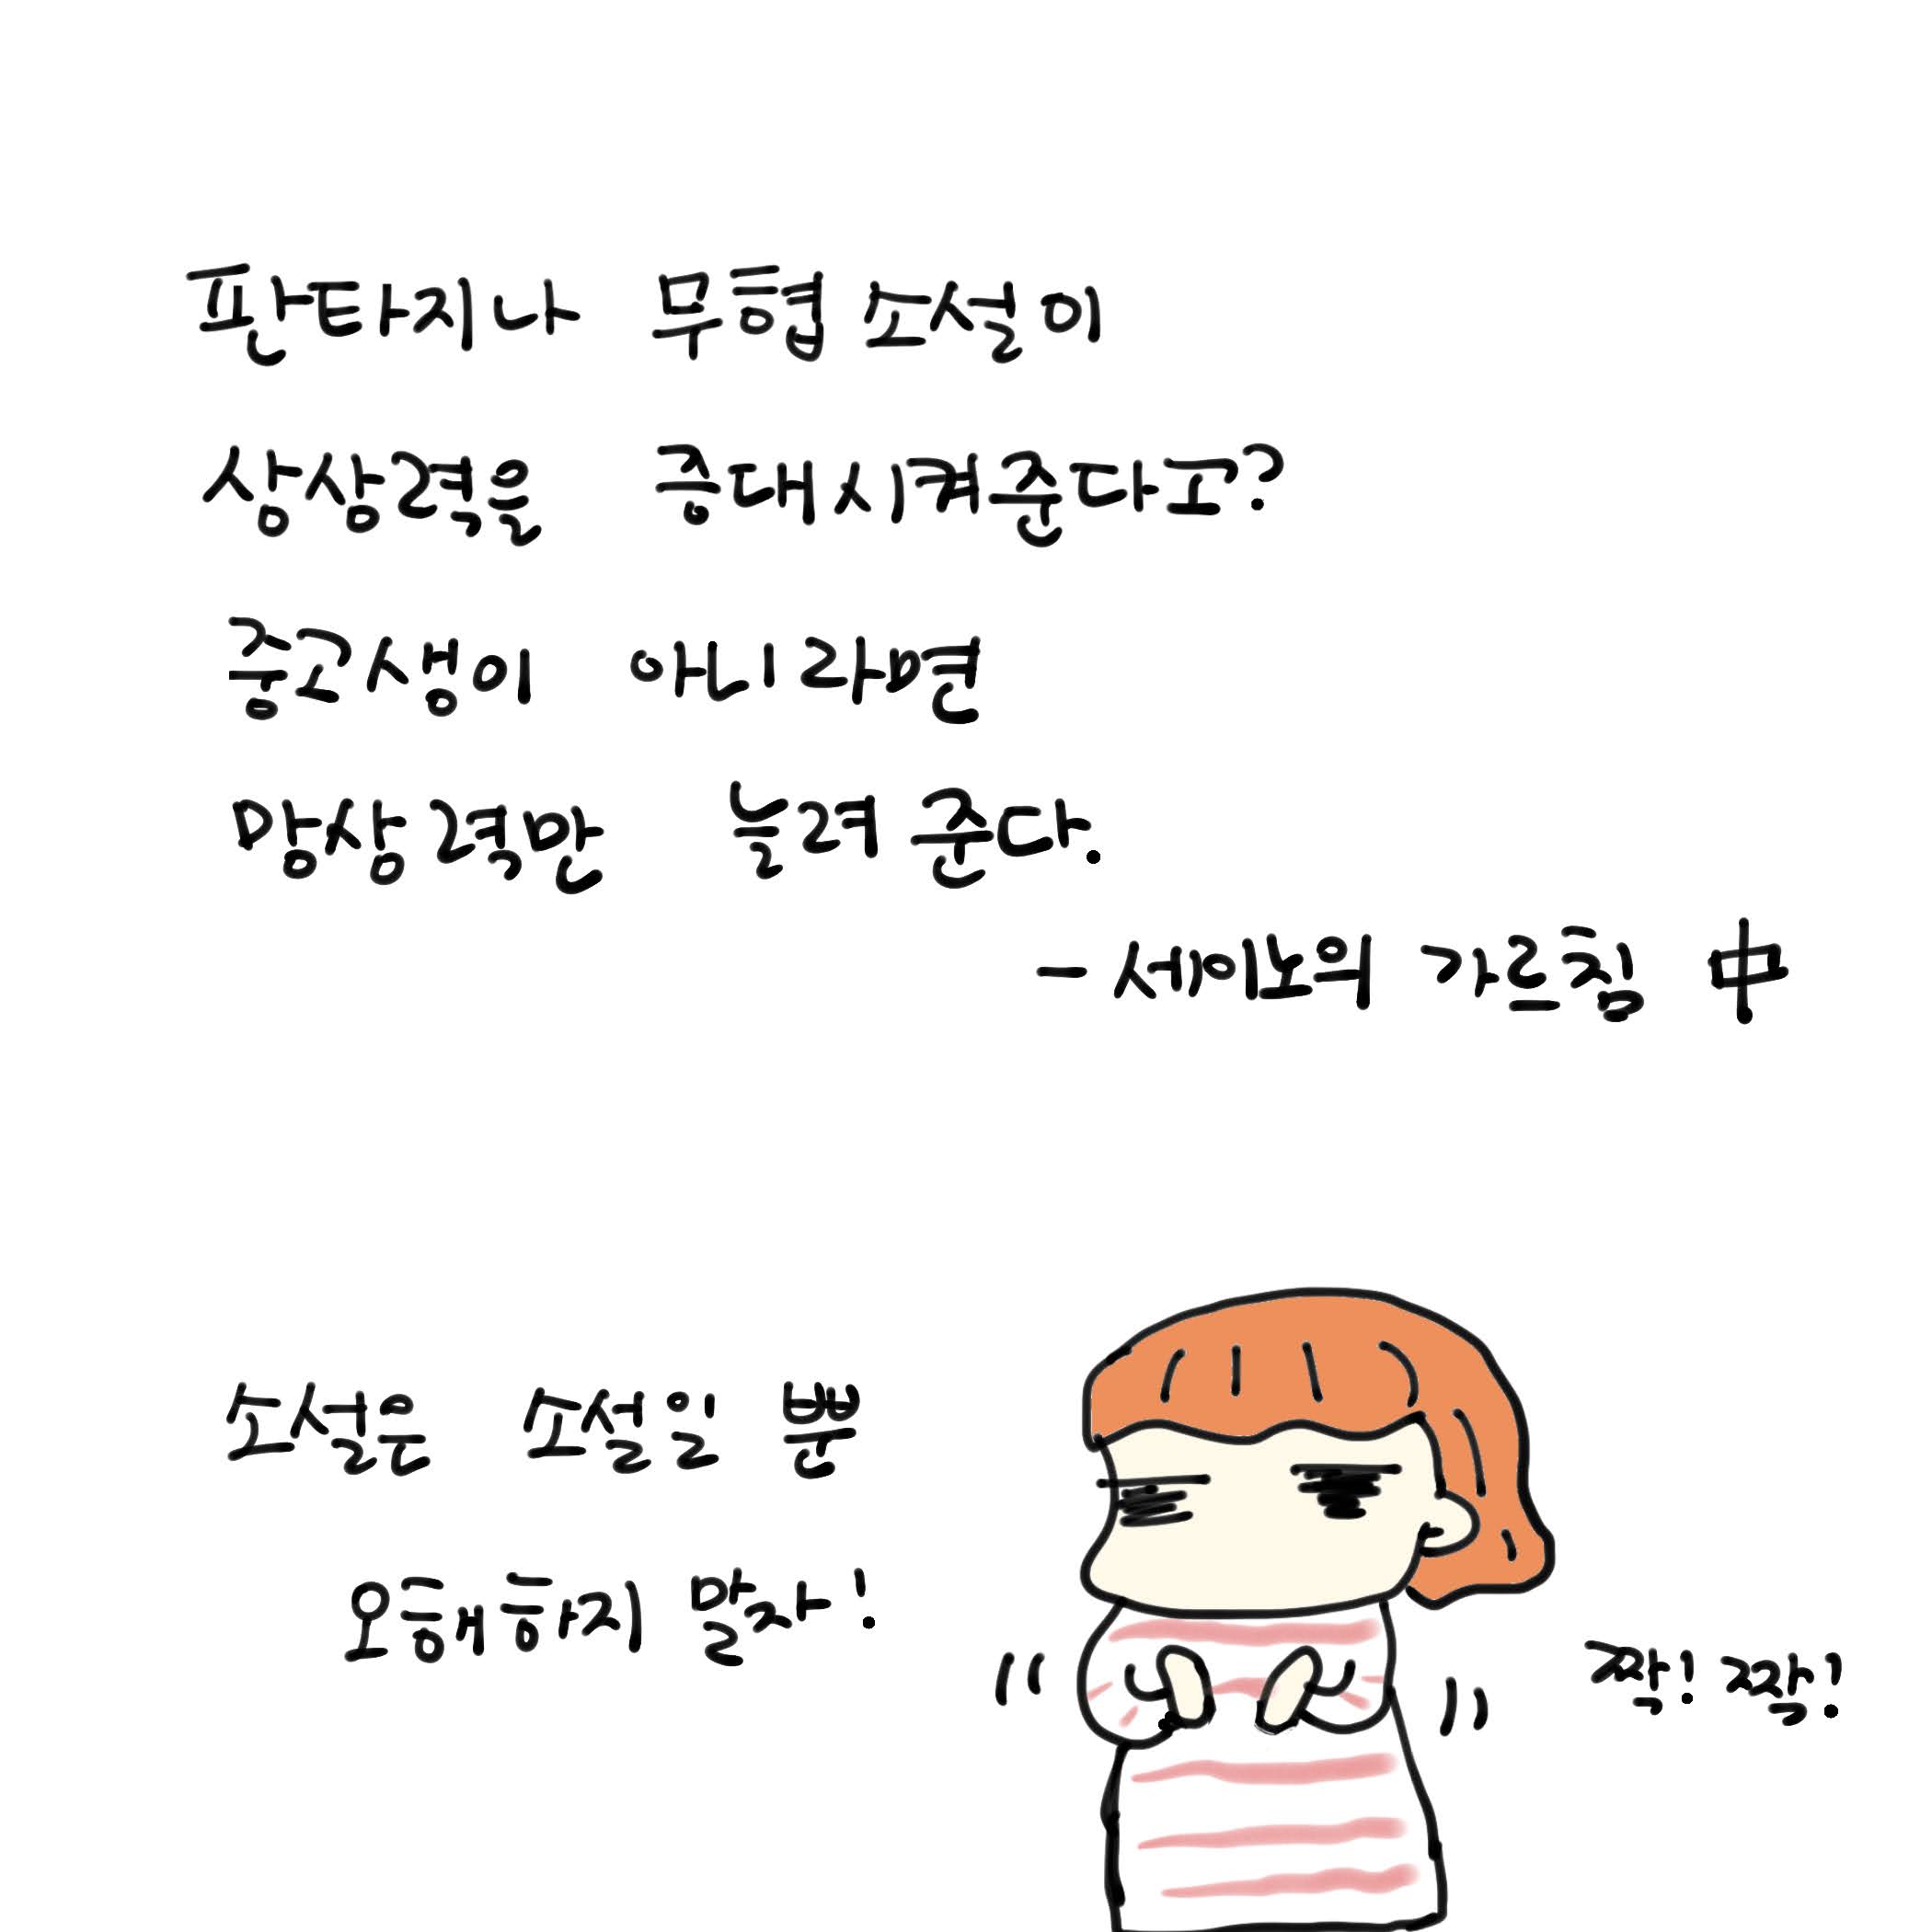 판타지나 무협소설이
상상력을 증대시켜준다고?
중고생이 아니라면
망상력만 늘려준다.
- 세이노의 가르침 中
소설은 소설일 뿐
오해하지 말자!
짝! 짝!